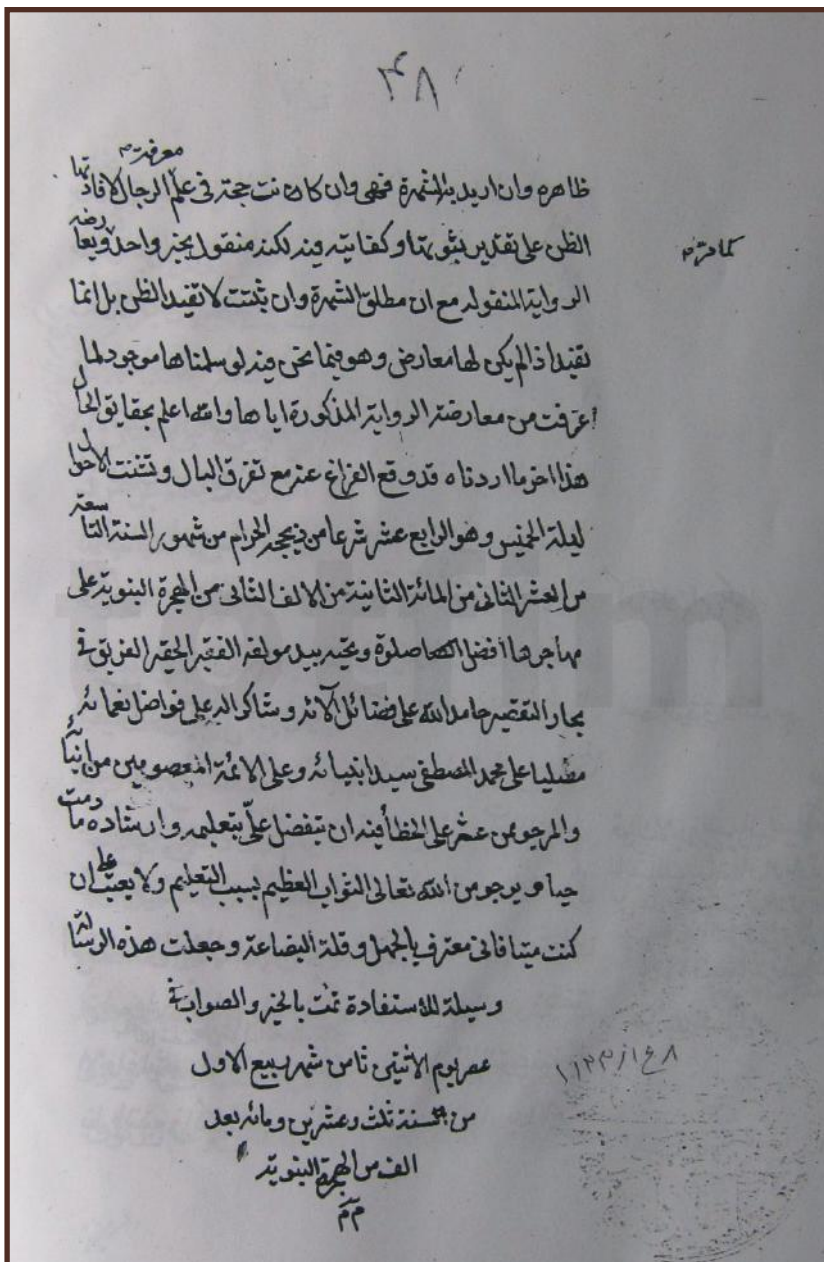 ۴۸
معرفته
ظاهره وان اريد به الشهرة فهى وان كانت حجة فى علم الرجال لافادتها
الظن على تقدير ثبوتها وكفايته فيه لكنه منقول بخبر واحد ويعارضه
كما مر
الرواية المنقوله مع ان مطلق الشهرة وان ثبتت لا تفيد الظن بل انما
تفيد اذا لم يكن لها معارض وهو فيما نحن فيه لو سلمناها موجود لما
عرفت من معارضة الرواية المذكورة اياها والله اعلم بحقايق الحال
هذا اخر ما اردناه قد وقع الفراغ عنه مع تفرق البال وتشتت الاحوال
ليلة الخميس وهو الرابع عشر شرعا من ذيحجه الحرام من شهور السنة التاسعة
من العشر الثانى من المائة الثانية من الالف الثانى من الهجرة النبوية على
مهاجرها افضل صلوة وتحيه بيد مولفه الفقير الحقير الغريق فى
بحار التقصير حامدا لله على فضائل آلائه وشاكرا له على فواضل نعمائه
مصليا على محمد المصطفى سيد انبيائه وعلى الائمة المعصومين من
والمرجو ممن عثر على الخطأ فيه ان يتفضل علىّ بتعليمه وارشاده ما دمت
حيا ويرجو من الله تعالى الثواب العظيم بسبب التعليم ولا يعيب علي ان
كنت ميتا فانى معترف بالجهل وقلة البضاعة وجعلت هذه الرسالة
وسيلة للاستفادة تمت بالخير والصواب فى
عصر يوم الاثنين ثامن شهر ربيع الاول
۸ ع ۱ از ۱۱۲۳
من سنة ثلث وعشرين ومائه بعد
الف من الهجرة النبوية
م م